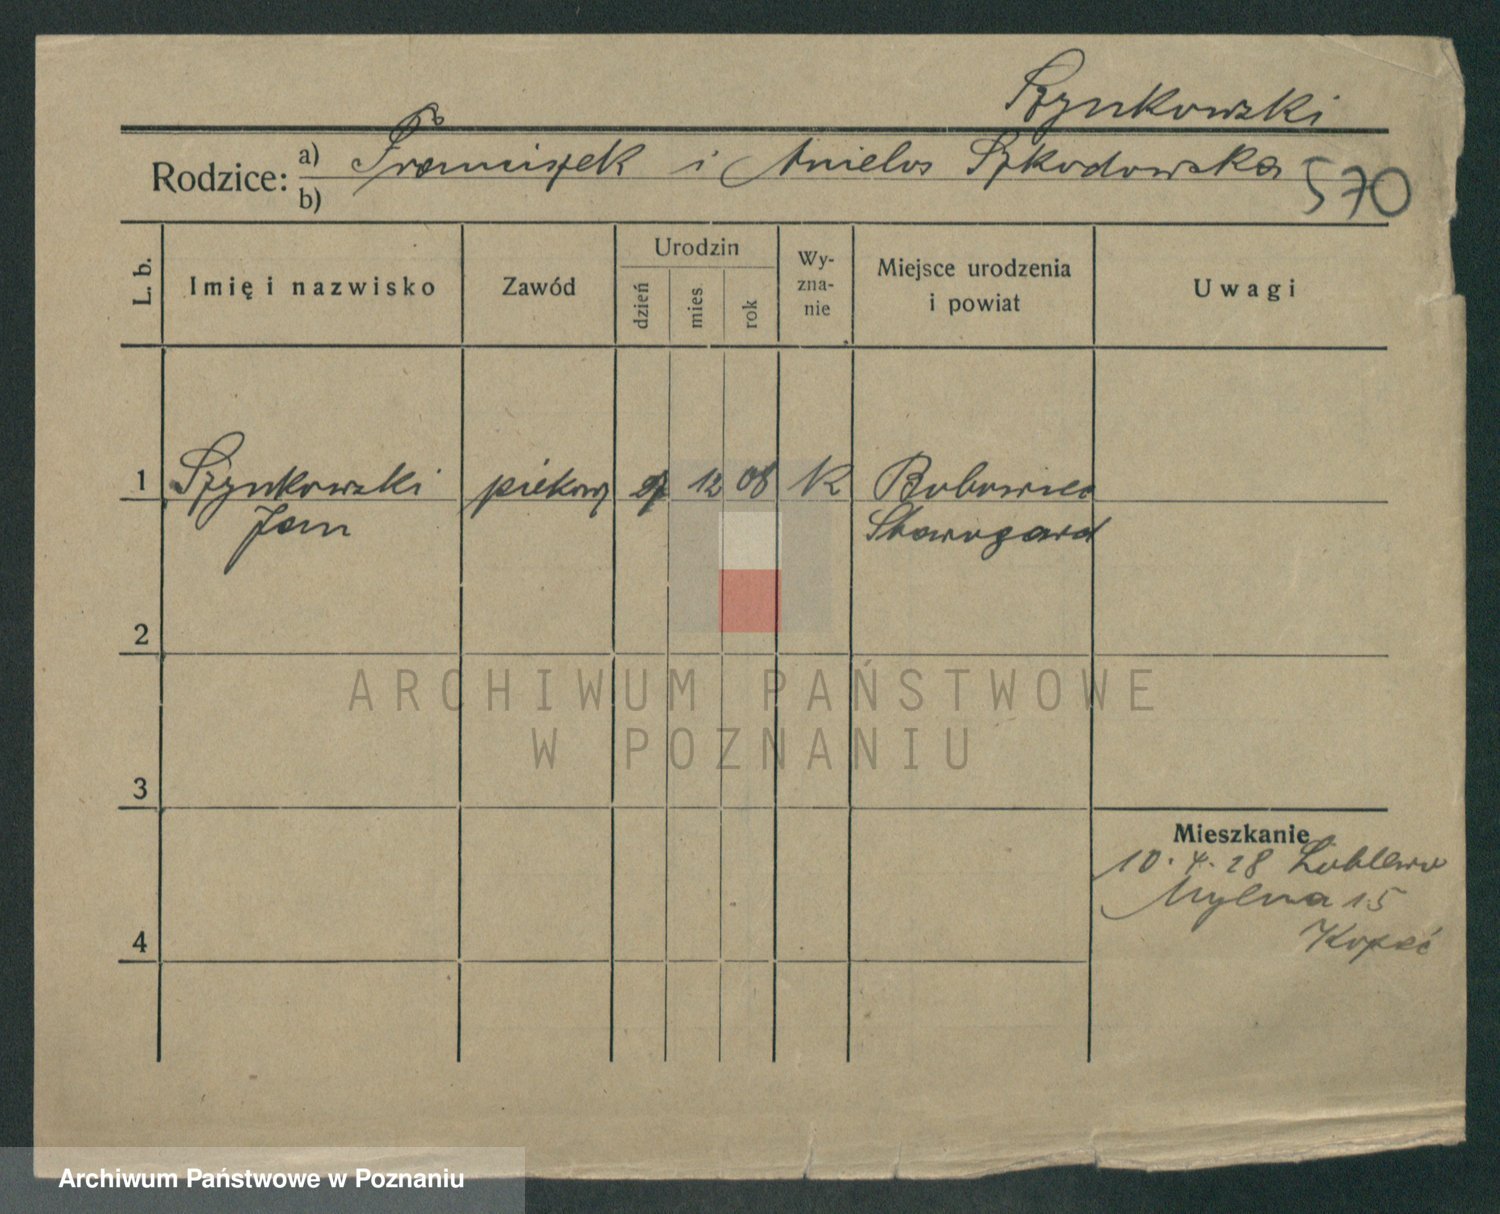 Szynkowski
Rodzice: a) Franciszek i Aniela Szkodowska
b)
570
L. b.
Imię i nazwisko
Zawód
Urodzin
dzień
mies
rok
Wy-
zna-
nie
Miejsce urodzenia
i powiat
Uwagi
1 Szynkowski 12 08 K Bobowiec
Jan Starogard
2
ARCHIWUM PAŃSTWOWE
W POZNANIU
3
Mieszkanie
10. 4. 28 Lublewo
Mylna 15
4
Archiwum Państwowe w Poznaniu